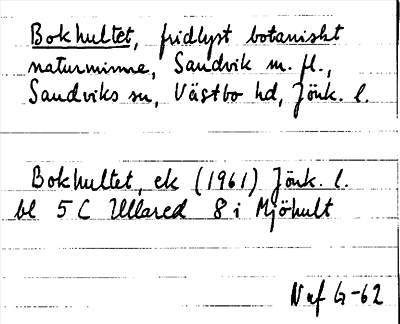 Bokhultet, fridlyst botaniskt
naturminne, Sandvik m. fl.,
Sandviks sn, Västbo hd, Jönk. l.
Bokhultet, ek (1961) Jönk. l.
bl 5 C Ullared 8 i Mjöhult
Naf G-62